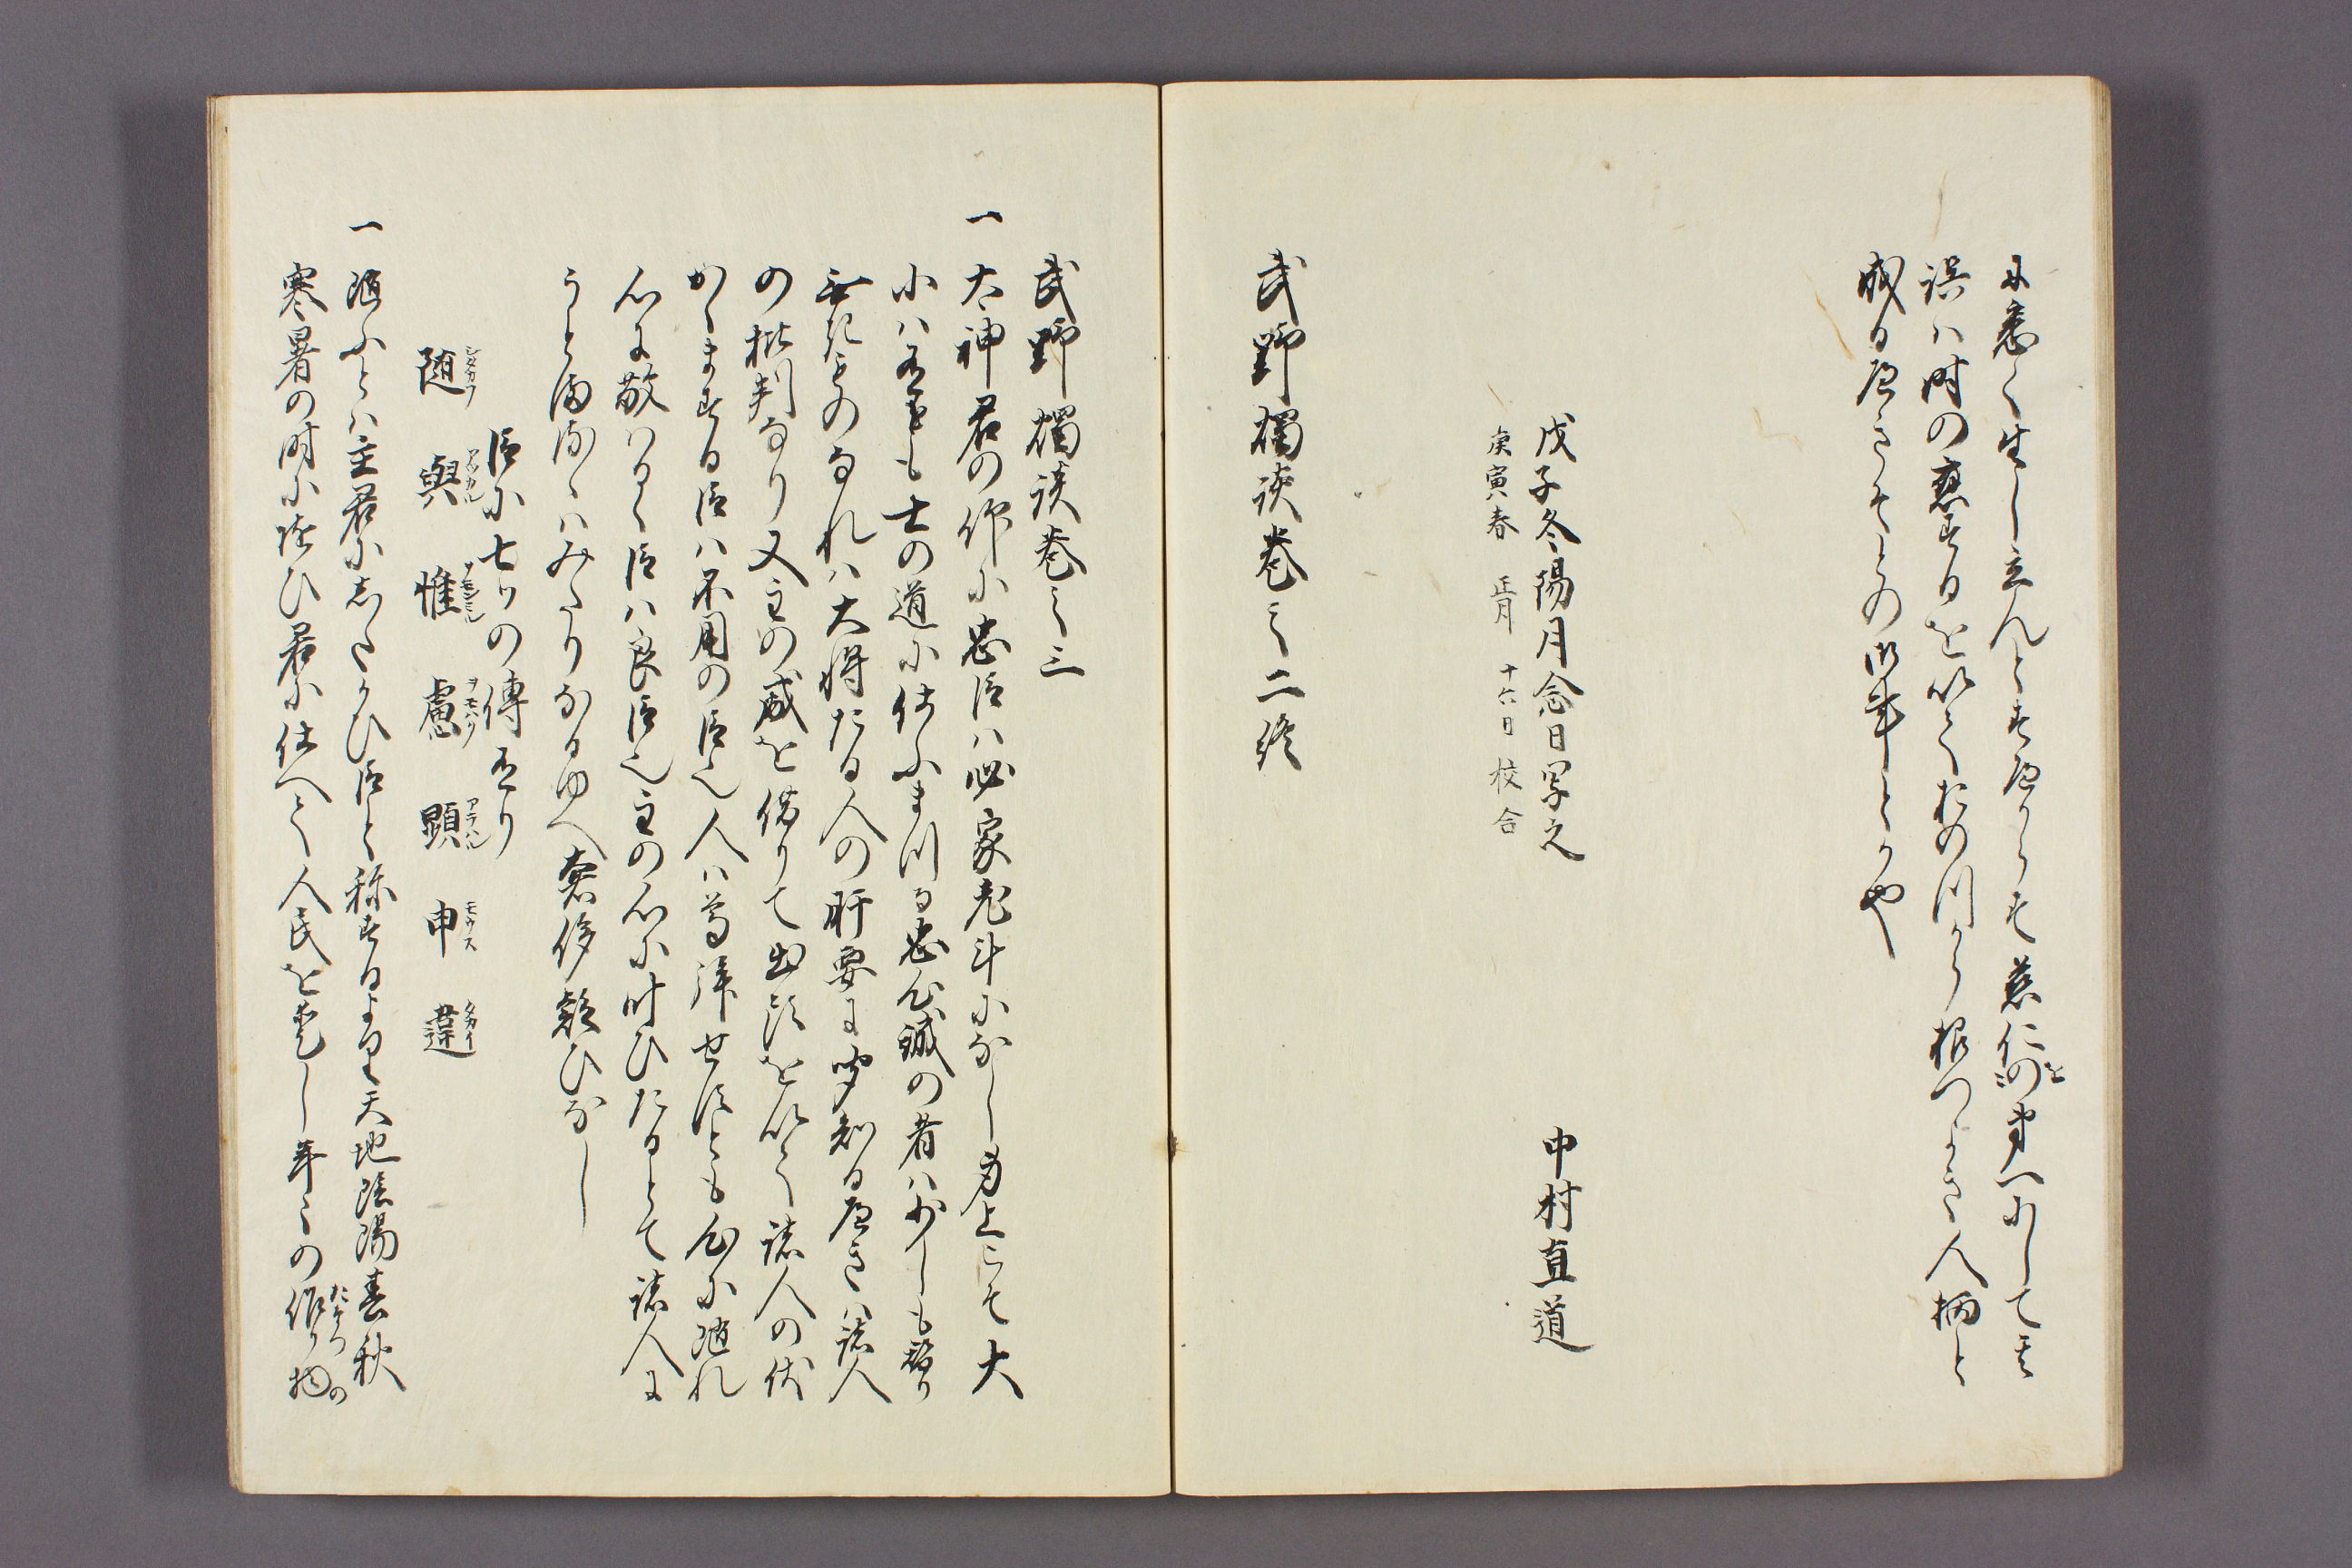 に悪く生し立んとすへからす慈仁を以事へかしてこそ
誤ハ時の意するを以ておのつから根つよき人柄と
成るへきそとの御事とかや
戊子冬陽月念日写之　中村直道
庚寅春　正月　十六日　校合
武野燭談巻之二終
武野燭談巻之三
一　大神君の仰に忠臣ハ必家老斗になし身上こそ大
小ハ有とも士の道に仕ふまつる忠心誠の者ハ少しも替り
無きものなれハ大将たる人の肝要に聞知るへきハ諸人
の批判なり又主の威を借りて出頭を以て諸人の伏
かくまする臣ハ不用の臣也人ハ尊拝せすとも心に随れ
心に敬ハるゝ臣ハ良臣也主の心に叶ひたるとて諸人に
うとまるゝハみたりなるゆへ奢侈疑ひなし
臣に七ツの傳有り
随 シタカフ　與 アツカル　惟 ヲモンミル　慮 ヲモハカリ　顕 アラハル　申 モウス　違 タカイ
一　随ふとハ主君にしたかひ臣と称するより天地陰陽春秋
寒暑の時に随ひ君に仕へて人民を愛し年々の作り物の